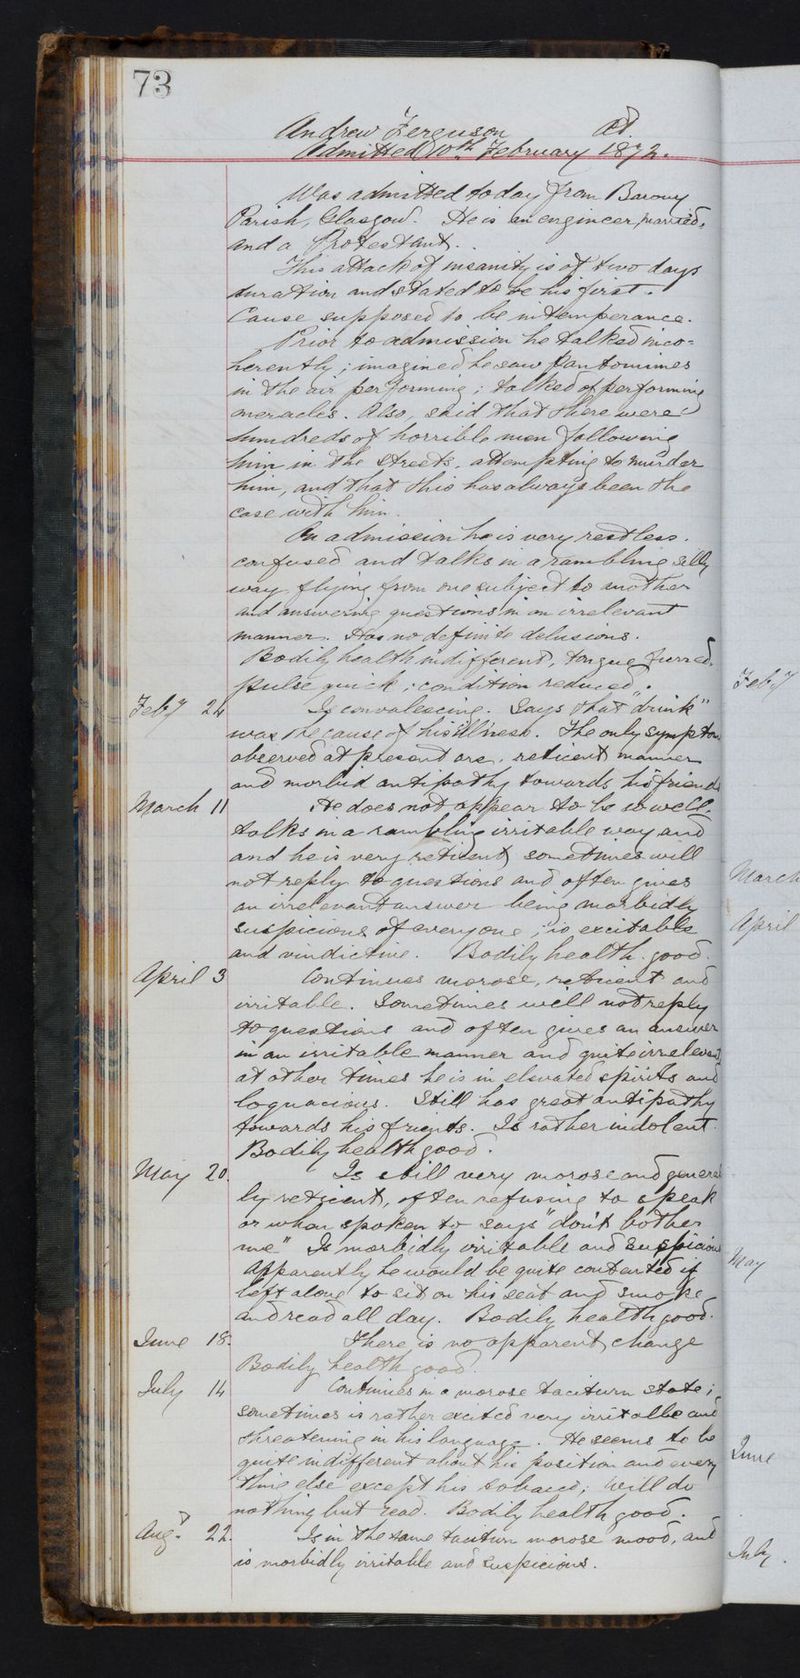 73
Andrew Ferguson æt.
Admitted 10th February 1872.
Was admitted today from Barony
Parish, Glasgow. He is an engineer, married,
and a Protestant.
This attack of insanity is of two days
duration and stated to be his first.
Cause supposed to be intemperance.
Prior to admission he talked inco=
herently; imagined he saw pantomimes
in the air performing; talked of performing
meracles. Also, said that there were
hundreds of horrible men following
him in the streets, attempting to murder
him, and that this has always been the
case with him.
On admission he is very restless.
confused and talks in a rambling silly
way flying from one subject to another
and answering questions in an irrelevant
manner. Has no definite delusions.
Bodily health indifferent, tongue furred.
pulse quick; condition reduced.
Feby 24 Is convalescing. Says that "drink"
was the cause of his illness. The only symptom
observed at present are, reticent manner
and morbid antipathy towards his friends
March 11 He does not appear to be so well.
talks in a rambling irritable way and
and he is very reticent, sometimes will
not reply to questions and often gives
an irrelevant answer being morbidly
suspicious of everyone; is excitable
and vindictive. Bodily health good.
April 3 Continues morose, reticent and
irritable. Sometimes will not reply
to questions and often gives an answer
in an irritable manner and quite irrelevant
at other times he is in elevated spirits and
loquacious. Still has great antipathy
towards his friends. Is rather indolent.
Bodily health good.
May 20. Is still very morose and general
ly reticent, often refusing to speak
or when spoken to says "don't bother
me" Is morbidly irritable and suspicious
Apparently he would be quite contented if
left alone to sit on his seat and smoke
and read all day. Bodily health good.
June 18. There is no apparent change
Bodily health good.
July 14 Continues in a morose taciturn state;
sometimes is rather excited very irritable and
threatening in his language. He seems to be
quite indifferent about his position and every
thing else except his tobacco; will do
nothing but read. Bodily health good.
Augt. 22. Is in the same taciturn morose mood, and
is morbidly irritable and suspicious.
Feby
March
April
May
June
July.